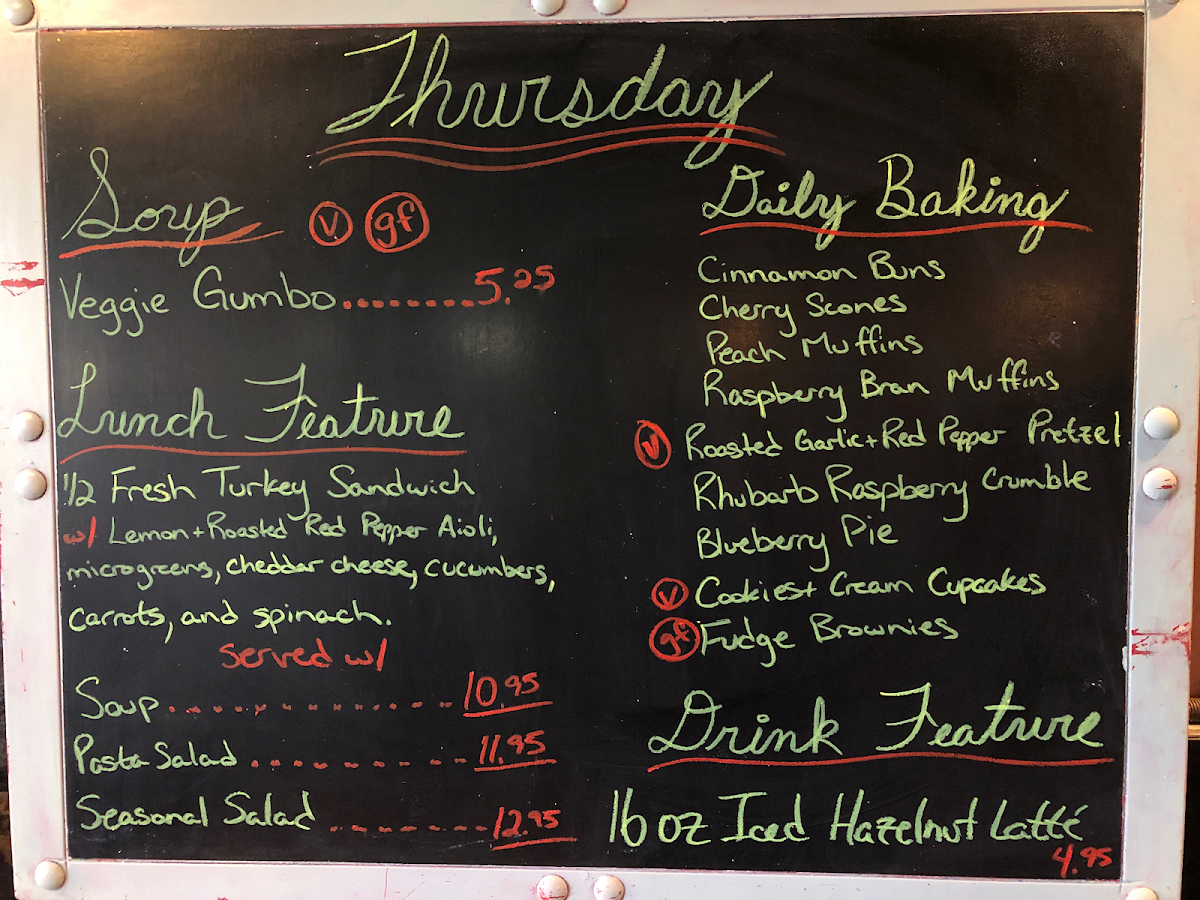 Thursday
Soup (v) (gf)
Veggie Gumbo.........5.25
Lunch Feature
1/2 Fresh Turkey Sandwich
w/ Lemon + Roasted Red Pepper Aioli,
microgreens, cheddar cheese, cucumbers,
carrots, and spinach.
served w/
Soup..............10.95
Pasta Salad..........11.95
Seasonal Salad.........12.95
Daily Baking
Cinnamon Buns
Cherry Scones
Peach Muffins
Raspberry Bran Muffins
(v) Roasted Garlic + Red Pepper Pretzel
Rhubarb Raspberry Crumble
Blueberry Pie
(v) Cookies + Cream Cupcakes
(gf) Fudge Brownies
Drink Feature
16 oz Iced Hazelnut Latté
4.95